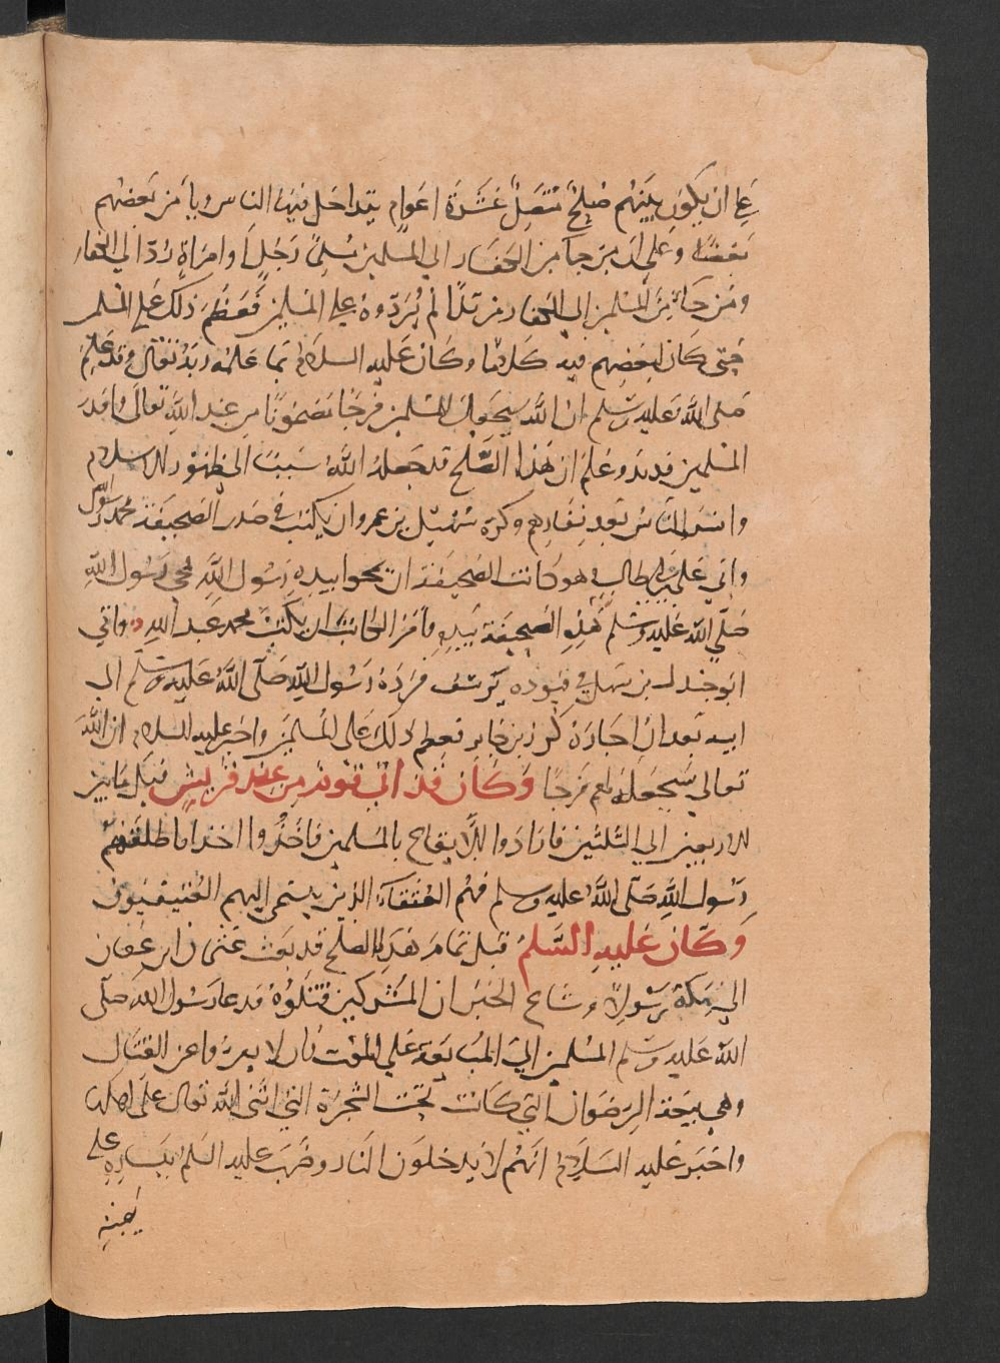 على ان يكون بينهم صلح متصل عشرة اعوام يتداخل فيها الناس ويأمن بعضهم
بعضا وعلى ان من جا من الكفار الى المسلمين مسلما رجلا او امراة رد الى الكفار
ومن جا من المسلمين الى الكفار مرتدا لم يردوه على المسلمين فعظم ذلك على المسلمين
حتى كان لبعضهم فيه كلاما وكان عليه السلام بما علمه ربه تعالى وقد علم
صلى الله عليه وسلم ان الله سيجعل للمسلمين فرجا من عند الله تعالى
المسلمين وعلم ان هذا الصلح قد جعله الله سببا الى ظهور الاسلام
وانس الناس بعد نفارهم وكره سهيل بن عمرو ان يكتب في صدر الصحيفة محمد رسول الله
وابي علي بن ابي طالب وهو كاتب الصحيفة ان يمحوا بيده رسول الله فمحى رسول الله
صلى الله عليه وسلم هذه الصحيفة بيده وامر الكاتب ان يكتب محمد بن عبد الله واتي
ابو جندل بن سهيل في قيوده يرسف فرده رسول الله صلى الله عليه وسلم الى
ابيه بعد ان اجاره مكرز بن جابر فعظم ذلك على المسلمين واخبر عليه السلام ان الله
تعالى سيجعل لهم فرجا وكان قد اتى قوم من عند قريش قبل ما بين
الاربعين الى الثلثين فارادوا الايقاع بالمسلمين فاخذوا اخذا فاطلقهم
رسول الله صلى الله عليه وسلم فهم العتقاء الذين ينتمي اليهم العتيقيون
وكان عليه السلم قبل تمام هذا الصلح قد بعث عثمان ابن عفان
الى مكة رسولا وشاع الخبر ان المشركين قتلوه فدعا رسول الله صلى
الله عليه وسلم المسلمين الى المبايعة على الموت وان لا يفروا عن القتال
وهي بيعة الرضوان التي كانت تحت الشجرة التي اثنى الله تعالى على اهلها
واخبر عليه السلام انهم لا يدخلون النار وضرب عليه السلم بيساره على
يمينه